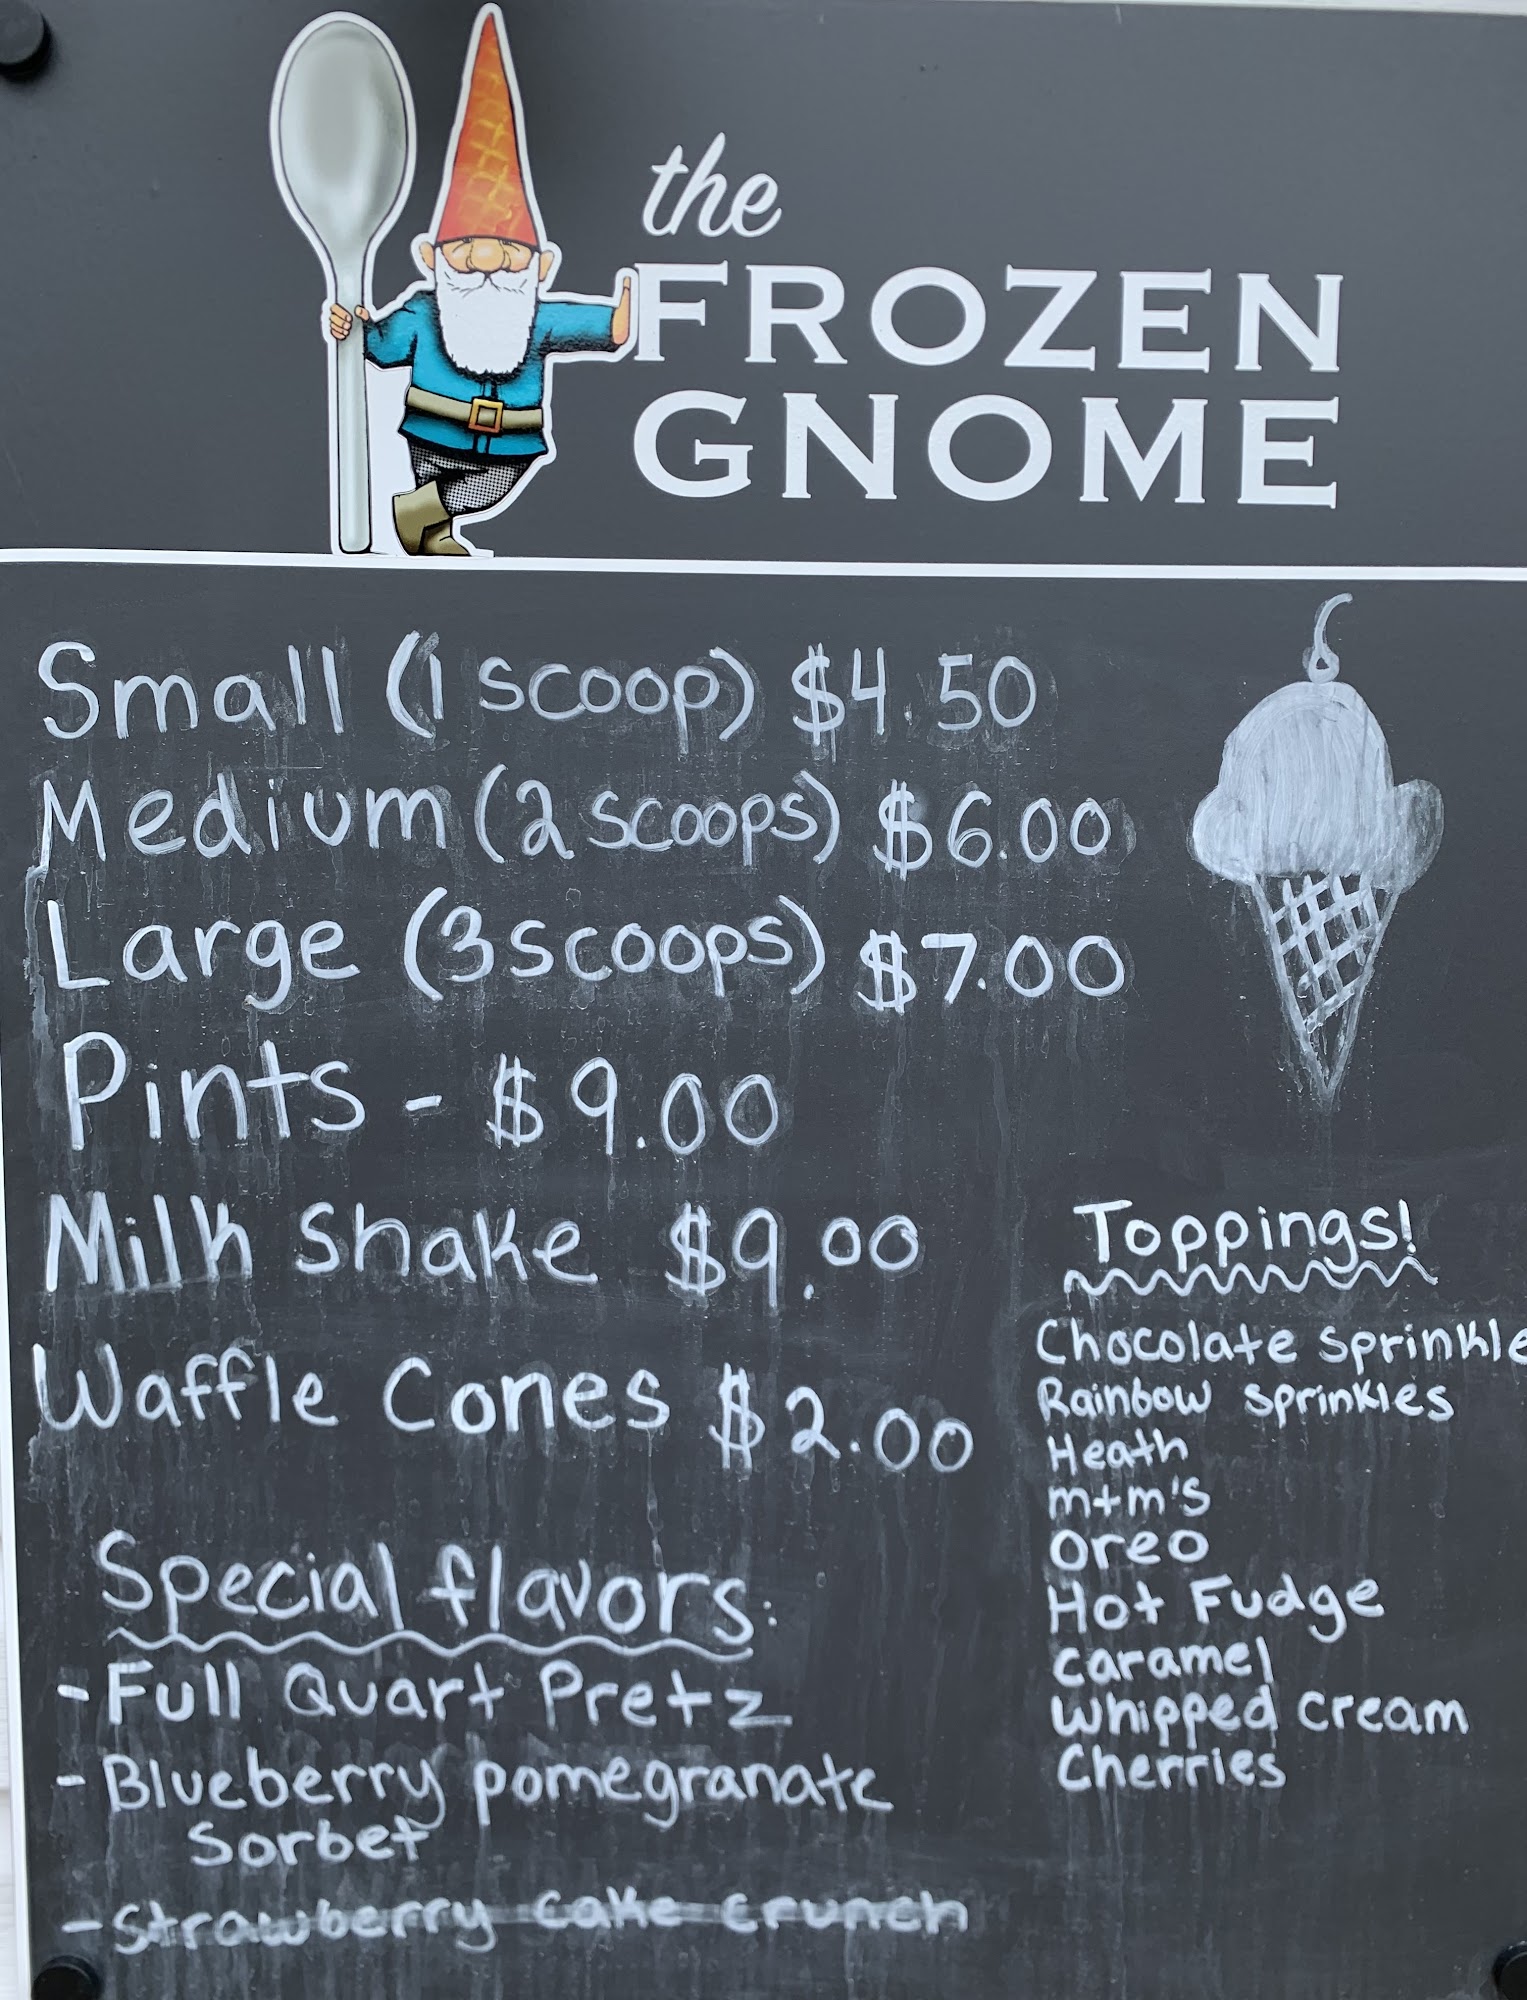 the
FROZEN
GNOME
Small (1 scoop) $4.50
Medium (2 scoops) $6.00
Large (3 scoops) $7.00
Pints - $9.00
Milk Shake $9.00
Waffle Cones $2.00
Special flavors:
- Full Quart Pretz
- Blueberry pomegranate
Sorbet
- Strawberry Cake Crunch
Toppings!
Chocolate Sprinkle
Rainbow Sprinkles
Heath
m+m's
Oreo
Hot Fudge
Caramel
Whipped Cream
Cherries